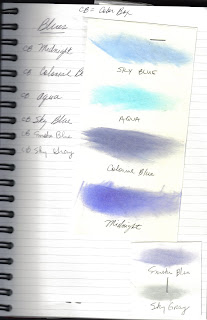 CB = Color Box
Blues
CB Midnight
CB Colonial Bl
CB Aqua
CB Sky Blue
CB Smoke Blue
CB Sky Gray
SKY BLUE
AQUA
Colonial Blue
Midnight
Smoke Blue
Sky Gray